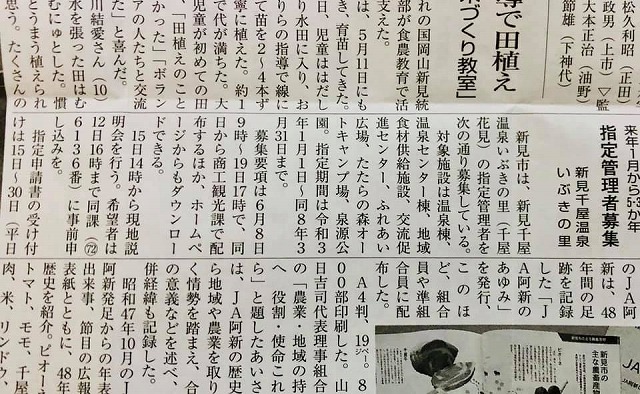 松久利昭（正田
政男（上市）▽監
大本正治（油野）
節雄（下神代）
導で田植え
づくり教室」
れの国岡山新見統
部が食農教育で活
支えた。
は、5月11日にも
き、育苗してきた。
日、児童ははだし
り水田に入り、お
りらの指導で線に
て苗を2～4本ず
寧に植えた。約1
で代が満ちた。大
児童が初めての田
「田植えのこと
かった」「ボラン
アの人たちと交流
た」と喜んだ。
川結愛さん（10）
水を張った田はむ
むにゅとした。慣
とうまう植えられ
思う。たくさんの
来年1月から5・3か年
指定管理者募集
新見千屋温泉
いぶきの里
新見市は、新見千屋
温泉いぶきの里（千屋
花見）の指定管理者を
次の通り募集している。
対象施設は温泉棟、
温泉センター棟、地域
食材供給施設、交流促
進センター、ふれあい
広場、たたらの森オー
トキャンプ場、泉源公
園。指定期間は令和3
年1月1日～同8年3
月31日まで。
募集要項は6月8日
9時～19日17時で、同
日から商工観光課で配
布するほか、ホームペ
ージからもダウンロー
ドできる。
15日14時から現地説
明会を行う。希望者は
12日16時まで同課（72
6136番）に事前申
し込みを。
指定申請書の受け付
けは15日～30日（平日
A阿新のJ
新は、48
年間の足
跡を記録
した「J
A阿新の
あゆみ」
を発行、
このほ
ど、組合
員や準組
合員に配
布した。
A4判、19ページ。8
00部印刷した。山
日吉司代表理事組合
の「農業・地域の持
へ 役割・使命これ
ら」と題したあいさ
は、JA阿新の歴史
ら地域や農業を取り
く情勢を踏まえ、合
の意義などを述べ、
併経緯も記録した。
昭和47年10月のJ
阿新発足からの年表
出来事、節目の広報
表紙とともに、48年
歴史を紹介。ピオーネ
トマト、モモ、千屋
肉、米、リンドウ、
新見市の
主な農畜産物
JA